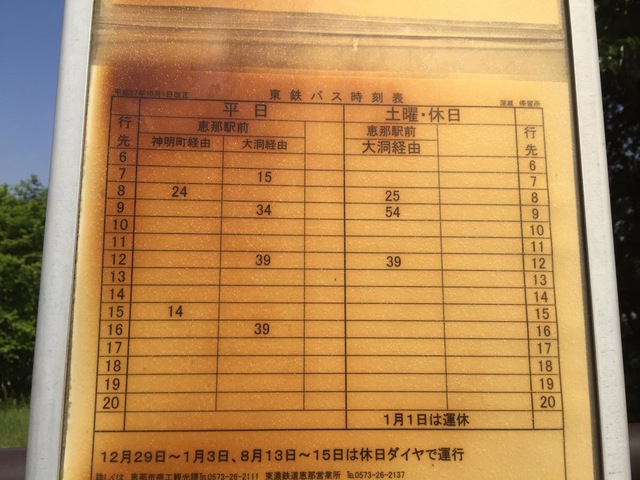 平成27年10月1日改正 東鉄バス時刻表 停留所
行先 平日 土曜・休日 行先
恵那駅前 恵那駅前
神明町経由 大洞経由 大洞経由
6 6
7 15 7
8 24 25 8
9 34 54 9
10 10
11 11
12 39 39 12
13 13
14 14
15 14 15
16 39 16
17 17
18 18
19 19
20 20
1月1日は運休
12月29日～1月3日、8月13日～15日は休日ダイヤで運行
詳しくは 恵那市商工観光課℡0573-26-2111 東濃鉄道恵那営業所 ℡0573-26-2137